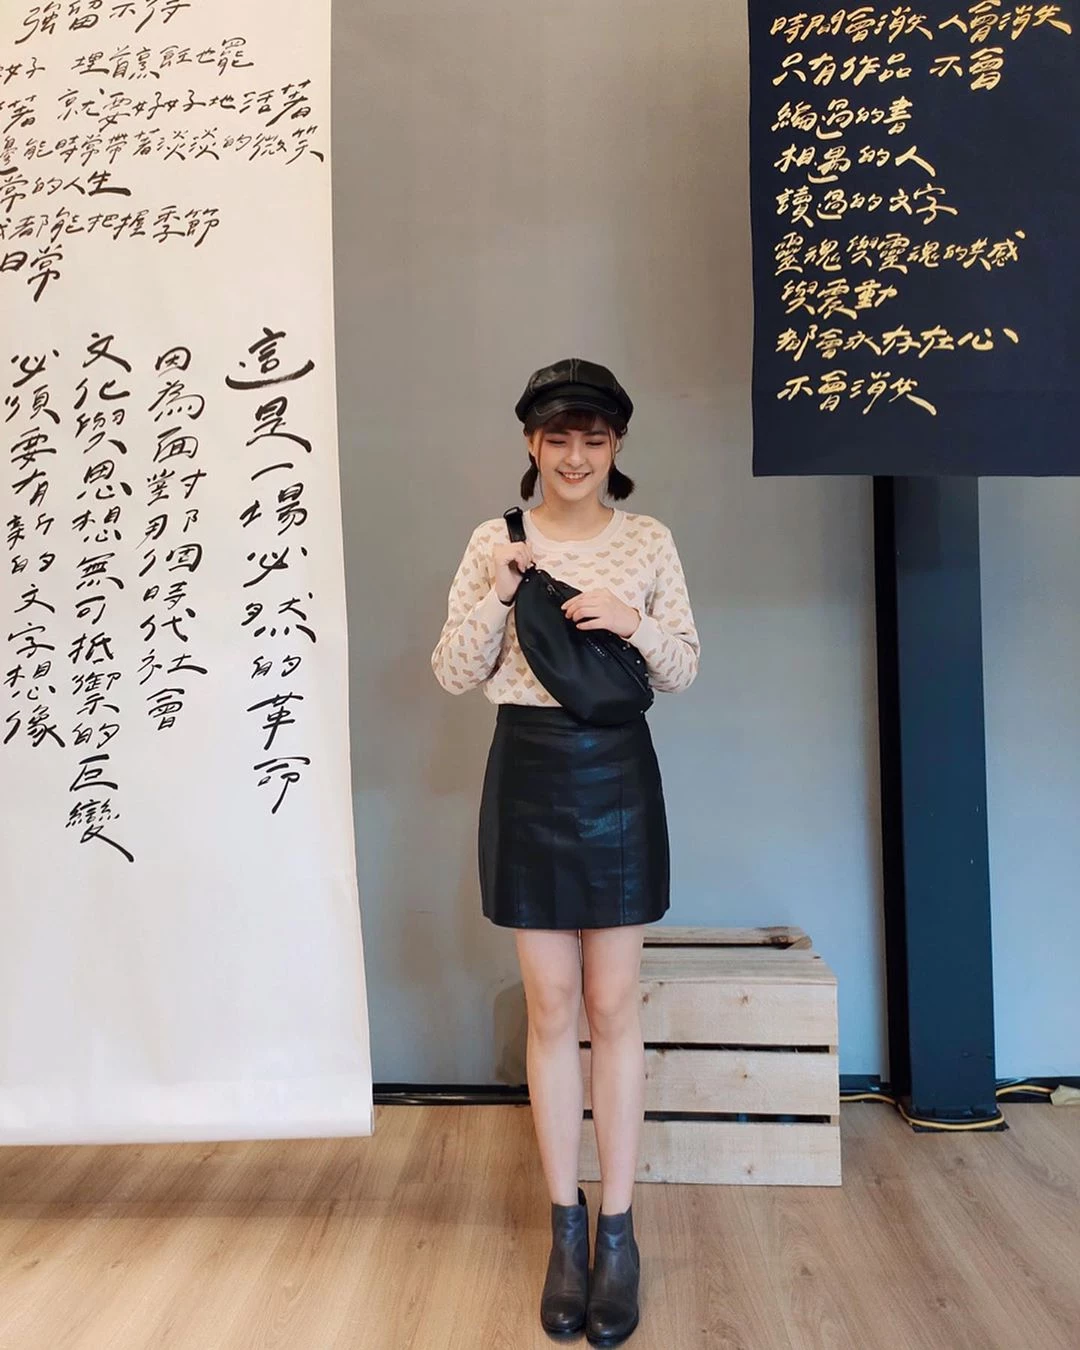 強留不得
好好 埋首烹飪也罷
著 就要好好地活著
能時常帶著淡淡的微笑
常的人生
我都能把握季節
日常
這是一場必然的革命
因為面對那個時代社會
文化與思想無可抵禦的巨變
必須要有新的文字想像
時間會消失 人會消失
只有作品 不會
編過的書
相遇的人
讀過的文字
靈魂與靈魂的共感
與震動
都會永存在心
不會消失